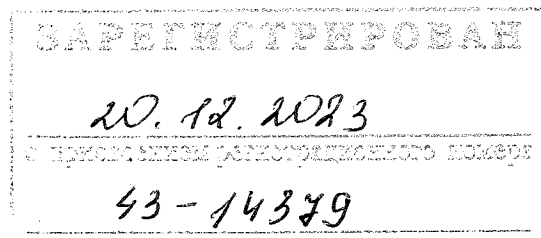 ЗАРЕГИСТРИРОВАН
20.12.2023
с присвоением регистрационного номера
43-14379